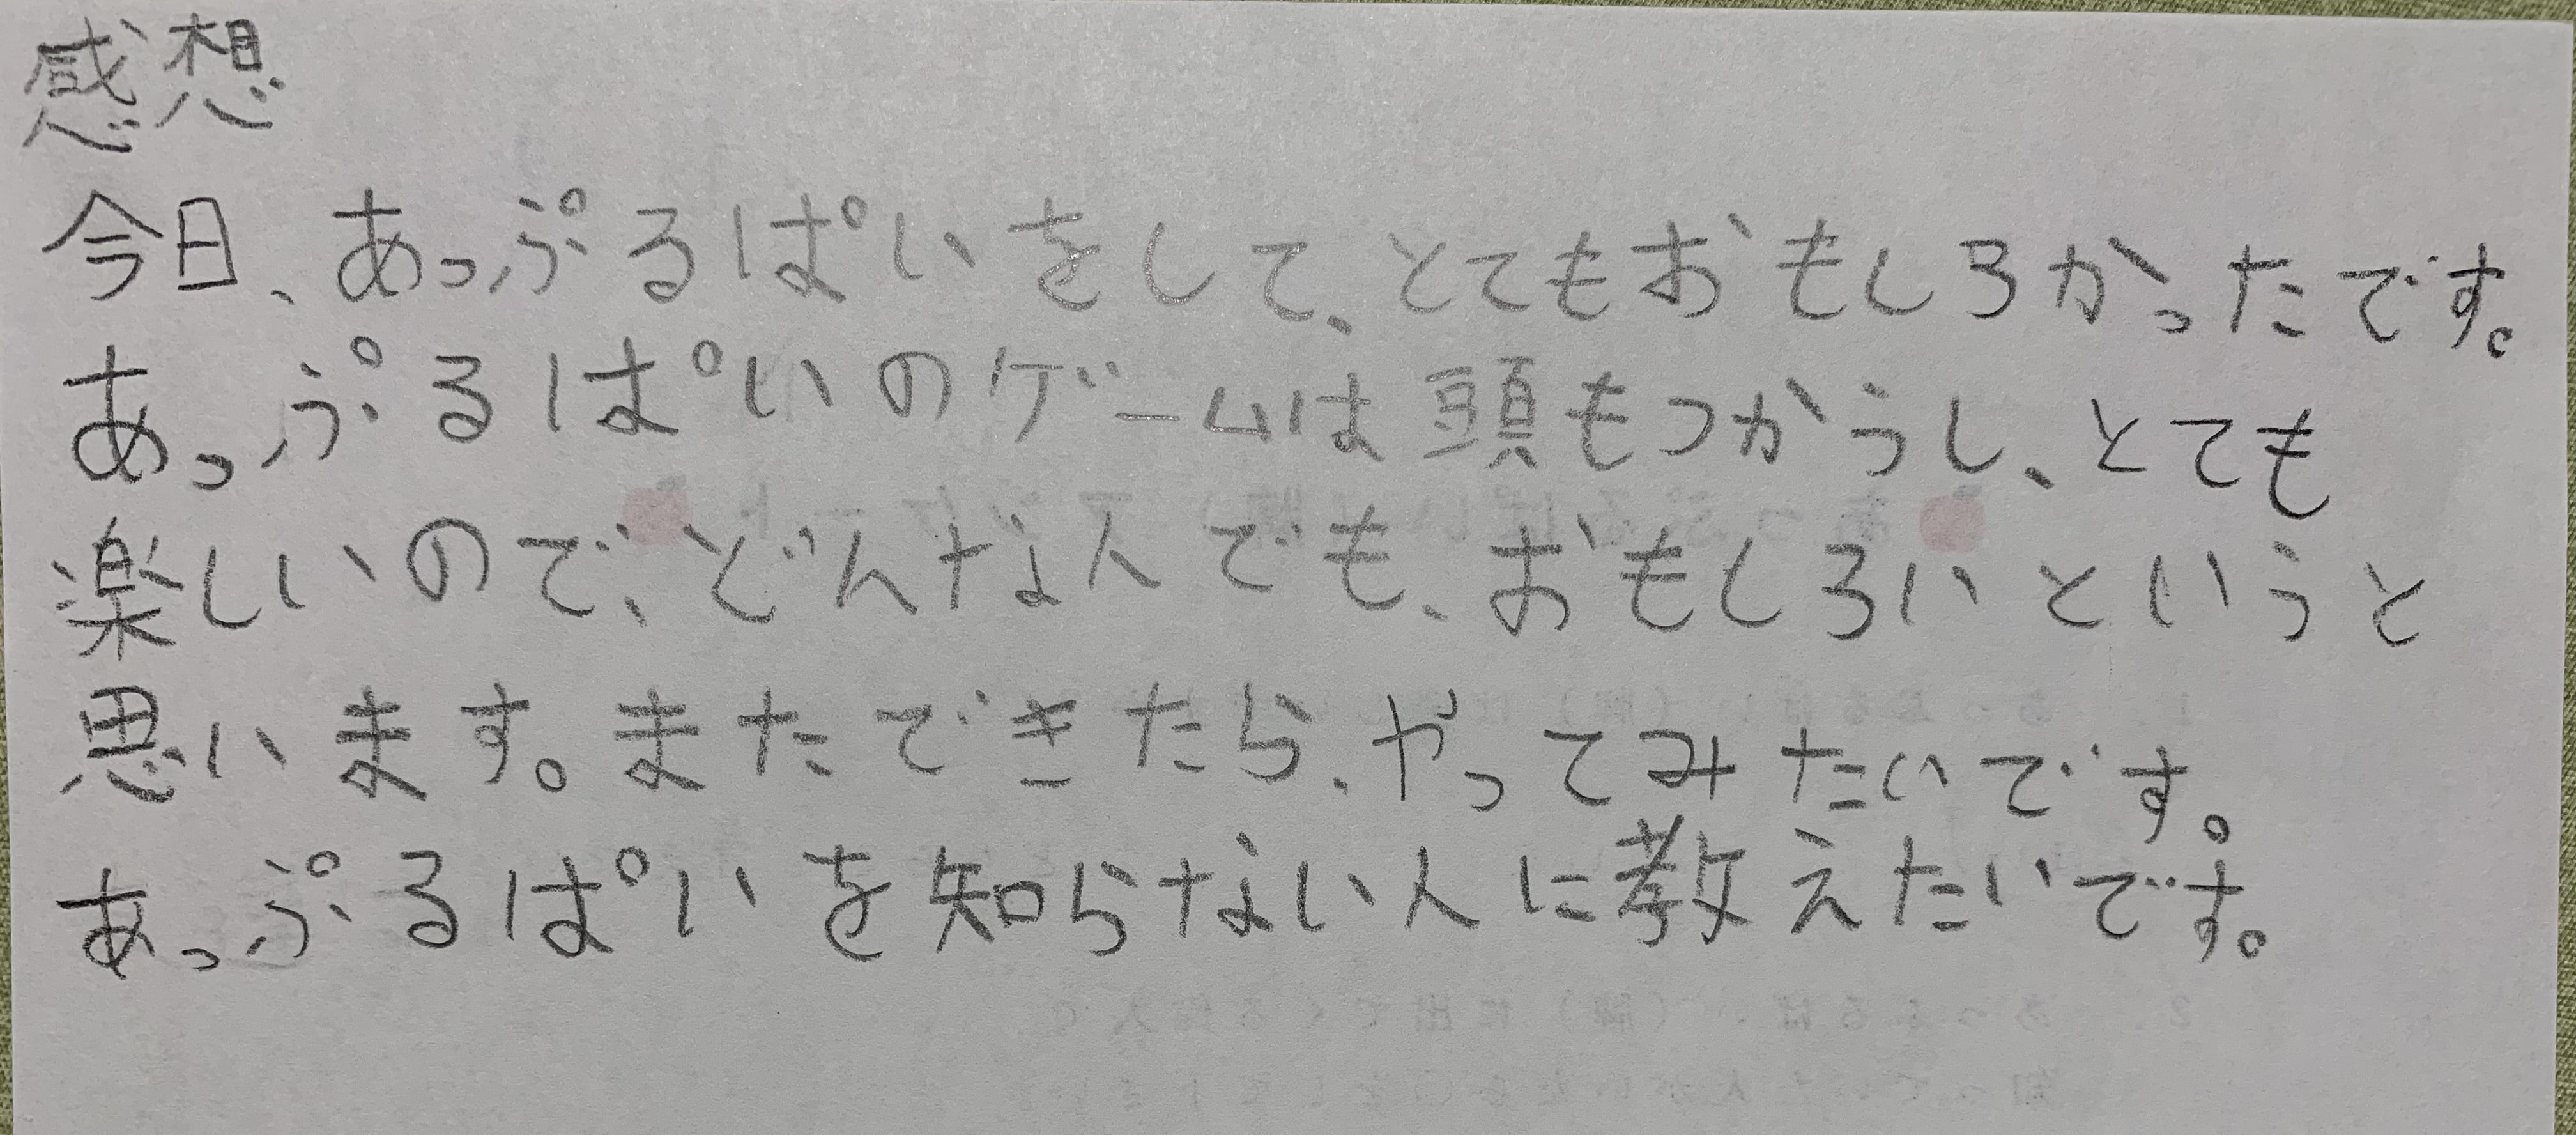 感想
今日、あっぷるぱいをして、とてもおもしろかったです。
あっぷるぱいのゲームは頭もつかうし、とても
楽しいので、どんな人でも、おもしろいというと
思います。またできたら、やってみたいです。
あっぷるぱいを知らない人に教えたいです。